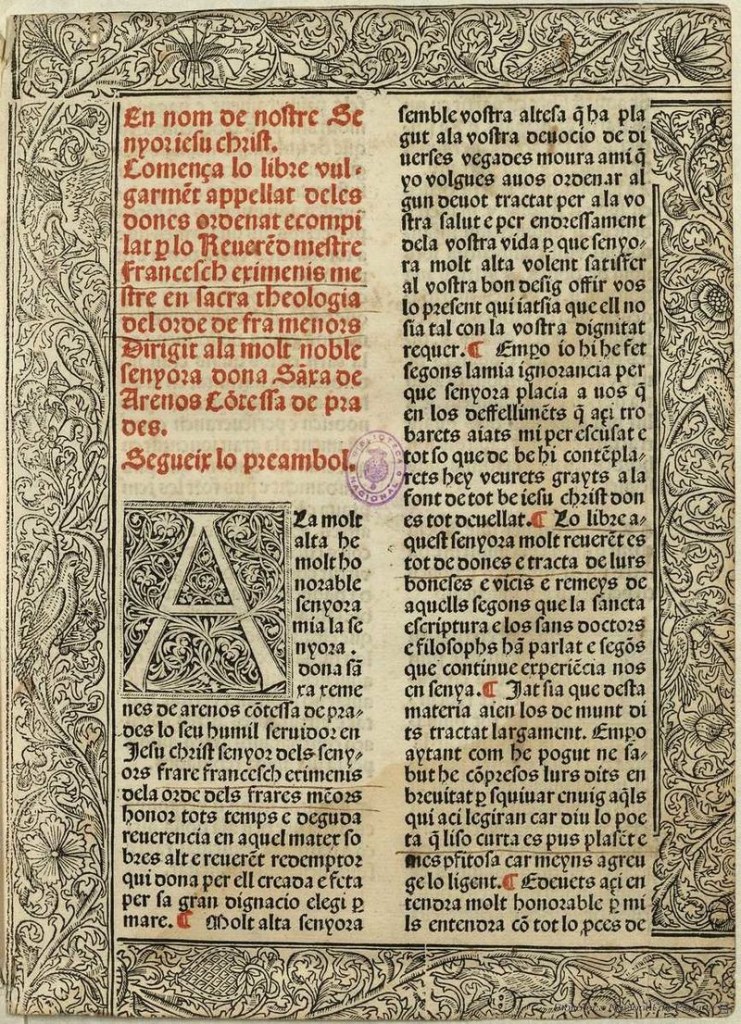 En nom de nostre Se
nyor iesu christ.
Comença lo libre vul-
garmēt appellat deles
dones ordenat e compi
lat p̱ lo Reuerēd mestre
francesch eximenis me
stre en sacra theologia
del orde de fra menors
Dirigit ala molt noble
senyora dona Sāxa de
Arenos Cōtessa de pra
des.
Segueix lo preambol.
A La molt
alta he
molt ho
norable
senyora
mia la se
nyora .
dona sā
xa xeme
nes de arenos cōtessa de pra-
des lo seu humil seruidor en
Jesu christ senyor dels seny-
ors frare francesch eximenis
dela orde dels frares mēors
honor tots temps e deguda
reuerencia en aquel matex so
bres alt e reuerēt redemptor
qui dona per ell creada e feta
per sa gran dignacio elegi p̱
mare. ¶ Molt alta senyora
semble vostra altesa q̄ ha pla
gut ala vostra deuocio de di
uerses vegades moura ami q̄
yo volgues auos ordenar al
gun deuot tractat per a la vo
stra salut e per endressament
dela vostra vida p̱ que senyo-
ra molt alta volent satisfer
al vostra bon desig offir vos
lo present qui iatsia que ell no
sia tal con la vostra dignitat
requer. ¶ Emp̱o io hi he fet
segons la mia ignorancia per
que senyora placia a uos q̄
en los deffellimēts q̄ açi tro
barets aiats mi per escusat e
tot so que de be hi contēpla-
rets hey veurets grayts a la
font de tot be iesu christ don
es tot deuellat. ¶ Lo libre a-
quest senyora molt reuerēt es
tot de dones e tracta de lurs
boneses e vicis e remeys de
aquells segons que la sancta
escriptura e los sans doctors
e filosophs hā parlat e segōs
que continue experiēcia nos
en senya. ¶ Jat sia que desta
materia aien los de munt di
ts tractat largament. Emp̱o
aytant com he pogut ne sa-
but he cōpresos lurs dits en
breuitat p̱ squiuar enuig aq̄ls
qui aci legiran car diu lo poe
ta q̄ liso curta es pus plasēt e
mes p̱fitosa car meyns agreu
ge lo ligent. ¶ Edeuets açi en
tendra molt honorable p̱ mi
ls entendra cō tot lo p̱ces de
BIBLIOTECA NACIONAL